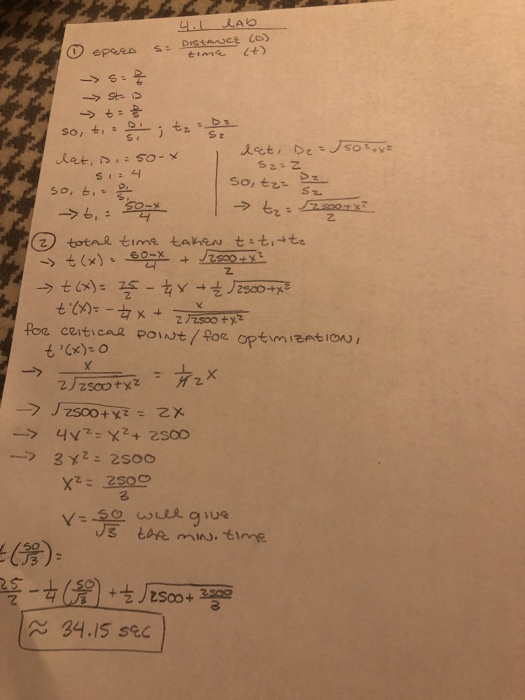 4.1 LAB
① SPEED S = DISTANCE (D) / TIME (t)
→ S = D/t
→ St = D
→ t = D/S
SO, t₁ = D₁/S₁ ; t₂ = D₂/S₂
let, D₁ = 50-x
S₁ = 4
so, t₁ = D₁/S₁
→ t₁ = 50-x/4
let, D₂ = √50²+x²
S₂ = 2
SO, t₂ = D₂/S₂
→ t₂ = √2500+x²/2
② total time taken t = t₁+t₂
→ t(x) = 50-x/4 + √2500+x²/2
→ t(x) = 25/2 - 1/4 x + 1/2 √2500+x²
t'(x) = -1/4 x + x/2√2500+x²
for critical point/for optimization,
t'(x)=0
→ x/2√2500+x² = 2x
→ √2500+x² = 2x
→ 4x² = x² + 2500
→ 3x² = 2500
x² = 2500/3
x = 50/√3 will give
the min. time
t(50/√3) =
25/2 - 1/4 (50/√3) + 1/2 √2500 + 2500/3
≈ 34.15 sec